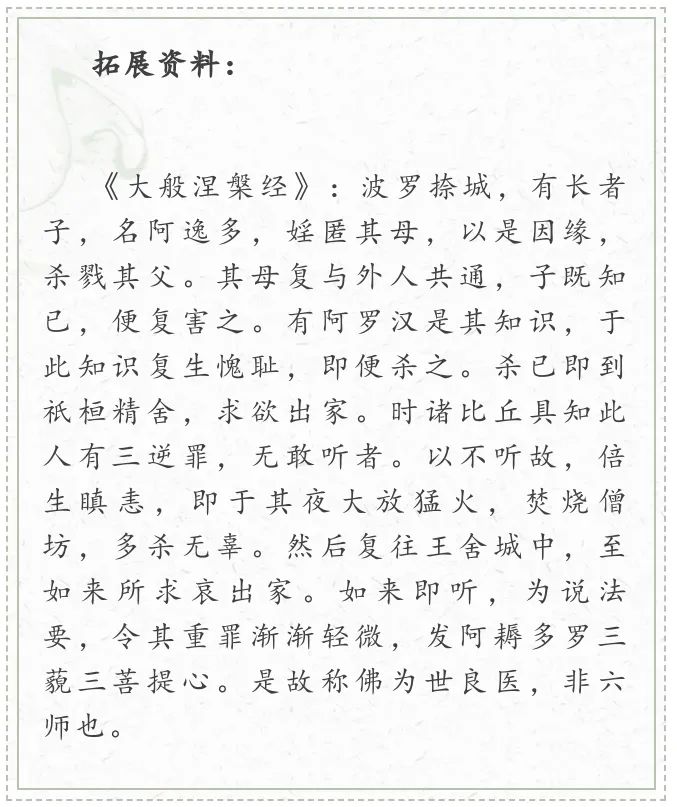 拓展资料：
《大般涅槃经》：波罗捺城，有长者
子，名阿逸多，婬匿其母，以是因缘，
杀戮其父。其母复与外人共通，子既知
已，便复害之。有阿罗汉是其知识，于
此知识复生愧耻，即便杀之。杀已即到
祇桓精舍，求欲出家。时诸比丘具知此
人有三逆罪，无敢听者。以不听故，倍
生瞋恚，即于其夜大放猛火，焚烧僧
坊，多杀无辜。然后复往王舍城中，至
如来所求哀出家。如来即听，为说法
要，令其重罪渐渐轻微，发阿耨多罗三
藐三菩提心。是故称佛为世良医，非六
师也。